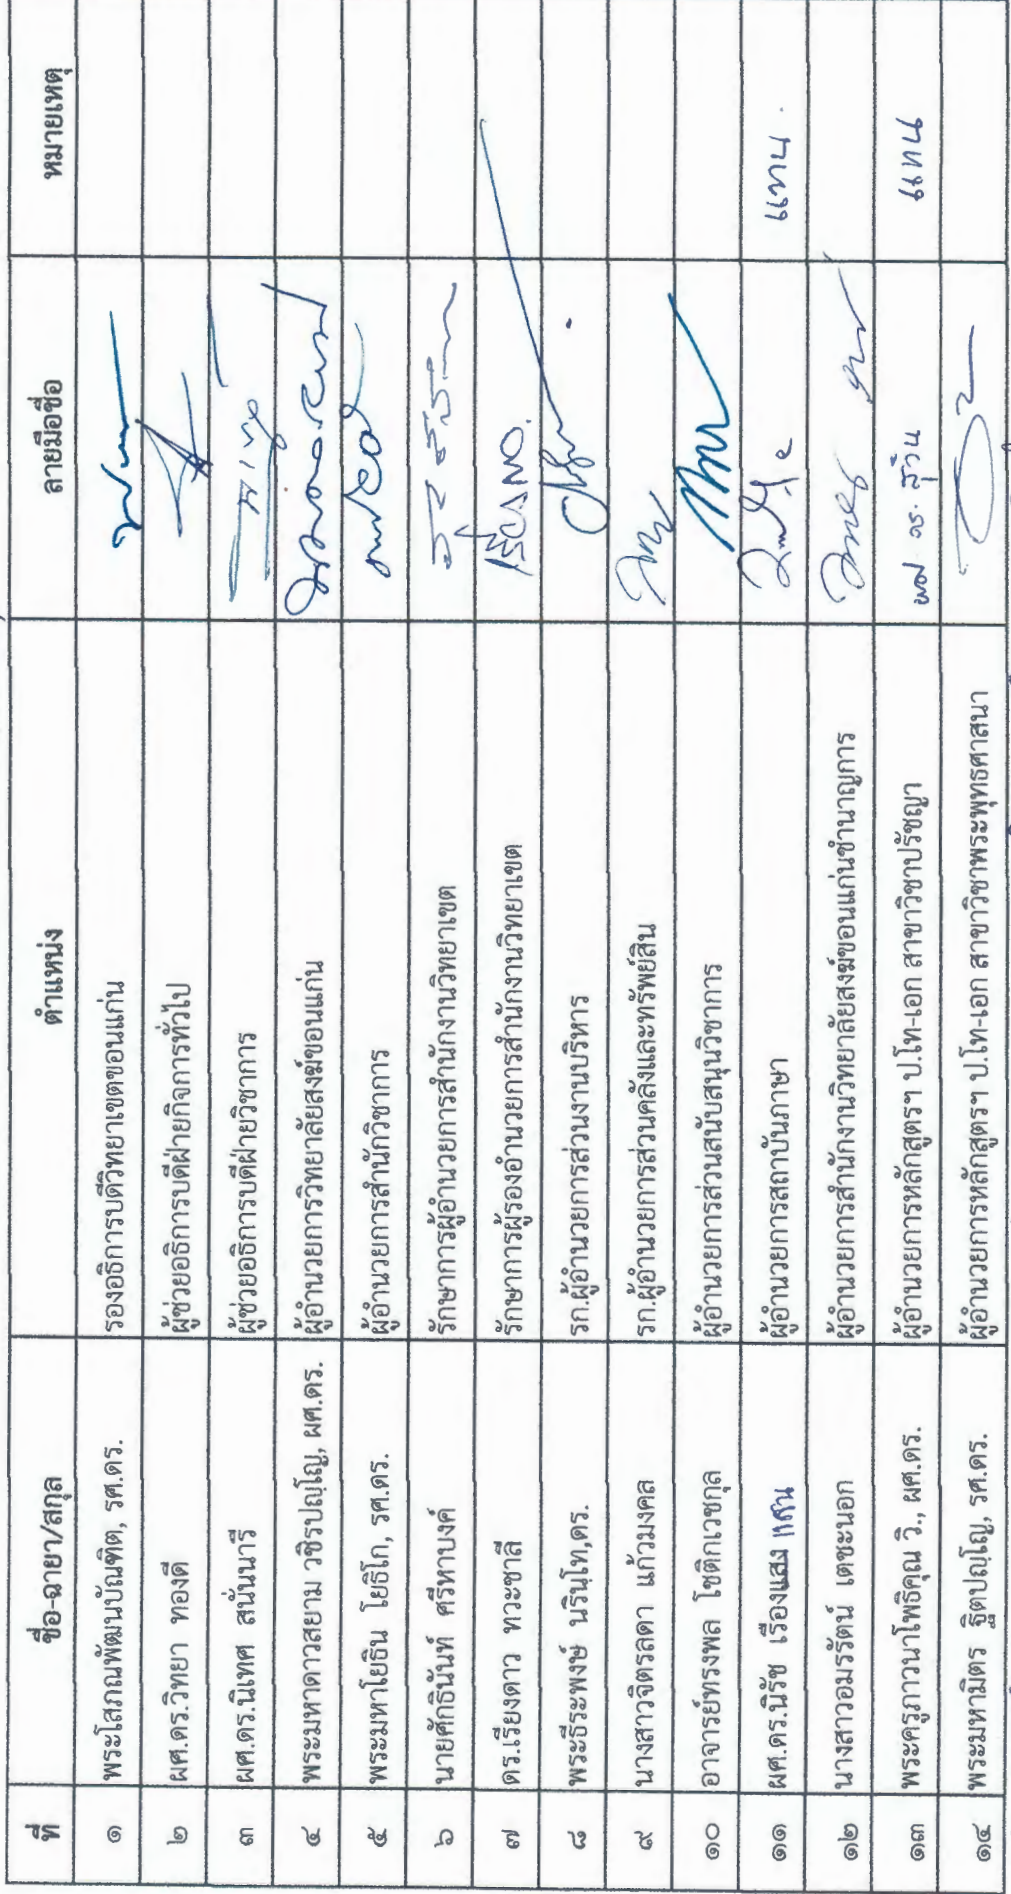 ที่ ชื่อ-ฉายา/สกุล ตำแหน่ง ลายมือชื่อ หมายเหตุ
๑ พระโสภณพัฒนบัณฑิต, รศ.ดร. รองอธิการบดีวิทยาเขตขอนแก่น
๒ ผศ.ดร.วิทยา ทองดี ผู้ช่วยอธิการบดีฝ่ายกิจการทั่วไป
๓ ผศ.ดร.นิเทศ สนั่นนารี ผู้ช่วยอธิการบดีฝ่ายวิชาการ
๔ พระมหาดาวสยาม วชิรปญฺโญ, ผศ.ดร. ผู้อำนวยการวิทยาลัยสงฆ์ขอนแก่น
๕ พระมหาโยธิน โยธิโก, รศ.ดร. ผู้อำนวยการสำนักวิชาการ
๖ นายศักธินันท์ ศรีหาบงค์ รักษาการผู้อำนวยการสำนักงานวิทยาเขต
๗ ดร.เรียงดาว ทวะชาลี รักษาการผู้รองอำนวยการสำนักงานวิทยาเขต
๘ พระธีระพงษ์ นรินฺโท,ดร. รก.ผู้อำนวยการส่วนงานบริหาร
๙ นางสาวจิตรลดา แก้วมงคล รก.ผู้อำนวยการส่วนคลังและทรัพย์สิน
๑๐ อาจารย์ทรงพล โชติกเวชกุล ผู้อำนวยการส่วนสนับสนุนวิชาการ
๑๑ ผศ.ดร.นิรัช เรืองแสง แสน ผู้อำนวยการสถาบันภาษา แทน.
๑๒ นางสาวอมรรัตน์ เตชะนอก ผู้อำนวยการสำนักงานวิทยาลัยสงฆ์ขอนแก่นชำนาญการ
๑๓ พระครูภาวนาโพธิคุณ วิ., ผศ.ดร. ผู้อำนวยการหลักสูตรฯ ป.โท-เอก สาขาวิชาปรัชญา ผศ. ดร. สุวิน แทน
๑๔ พระมหามิตร ฐิตปญฺโญ, รศ.ดร. ผู้อำนวยการหลักสูตรฯ ป.โท-เอก สาขาวิชาพระพุทธศาสนา